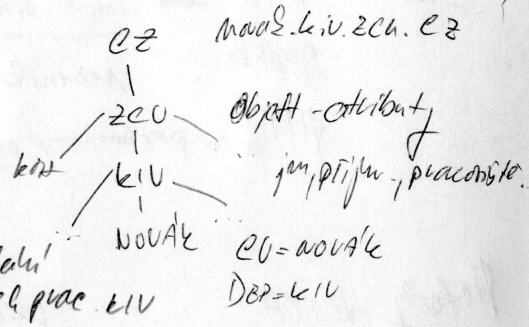 CZ
novák.kiv.zcu.cz
ZCU
Objekt - atributy
KIV
jm, příjm, pracoviště.
NOVÁK
CU=NOVÁK
DEP=KIV
prac. KIV